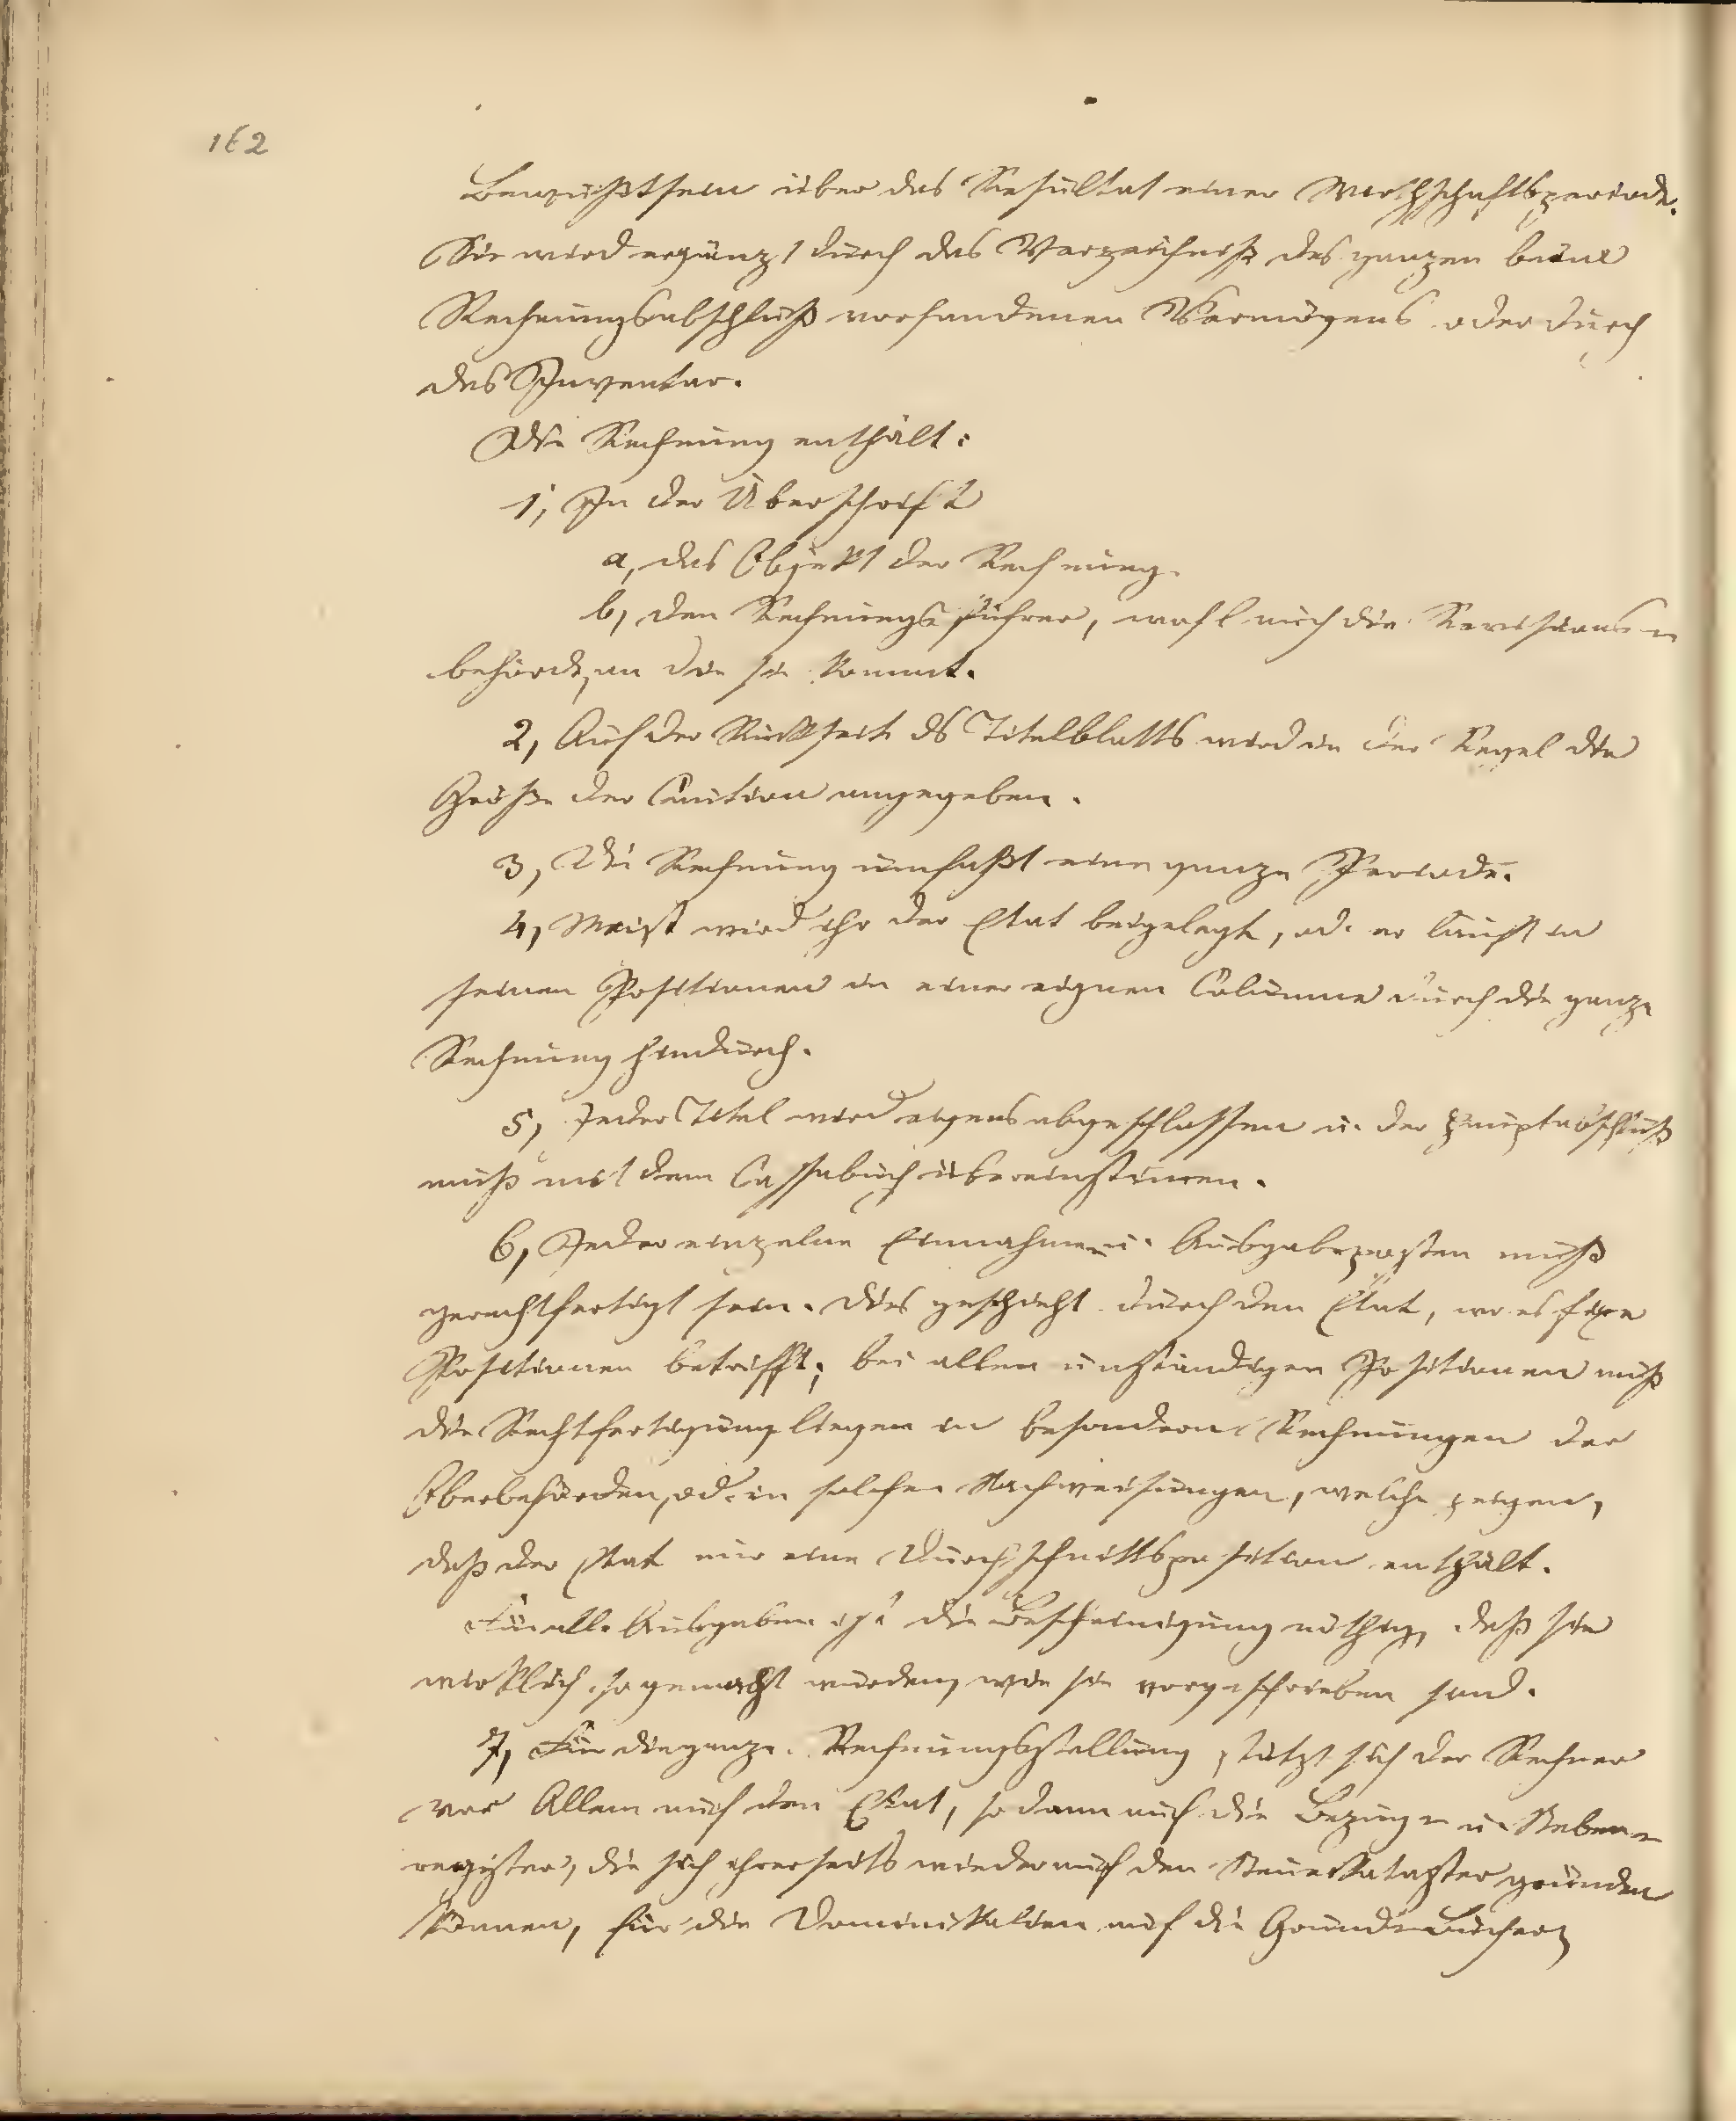 162
Bewußtsein über das Resultat einer Wirthschaftsperiode.
Sie wird ergänzt durch das Verzeichniß des ganzen beim
Rechnungsabschluß vorhandenen Vermögens oder durch
das Inventar.
Die Rechnung enthält:
1, In der Überschrift
a, das Objekt der Rechnung.
b, den Rechnungsführer, wohl auch die Revisions-
behörde, an die sie kommt.
2, Auf der Rückseite ds Titelblatts wird in der Regel die
Größe der Caution angegeben.
3, Die Rechnung umfaßt eine ganze Periode.
4, Meist wird ihr der Etat beigelegt, od. er läuft in
seinen Positionen in einer eignen Columne durch die ganze
Rechnung hindurch.
5, Jeder Titel wird eigens abgeschlossen u. der Hauptabschluß
muß mit dem Cassabuch übereinstimen.
6, Jeder einzelne Einnahme- u. Ausgabeposten muß
gerechtfertigt sein. Dies geschieht durch den Etat, wo es fixe
Positionen betrifft; bei allen unständigen Positionen muß
die Rechtfertigung liegen in besondern Rechnungen der
Oberbehörden, od. in solchen Nachweisungen, welche zeigen,
daß der Etat nur eine Durchschnittsposition enthält.
Für alle Ausgaben ist die Bescheinigung nöthig, daß sie
wirklich so gemacht wurden, wie sie vorgeschrieben sind.
7, Für die ganze Rechnungsstellung stützt sich der Rechner
vor Allem auf den Etat, sodann auf die Bezugs- u. Heben-
register, die sich ihrerseits wieder auf den Steuerkataster gründen
können, für die Dominikalien auf die Grund-Bücher,